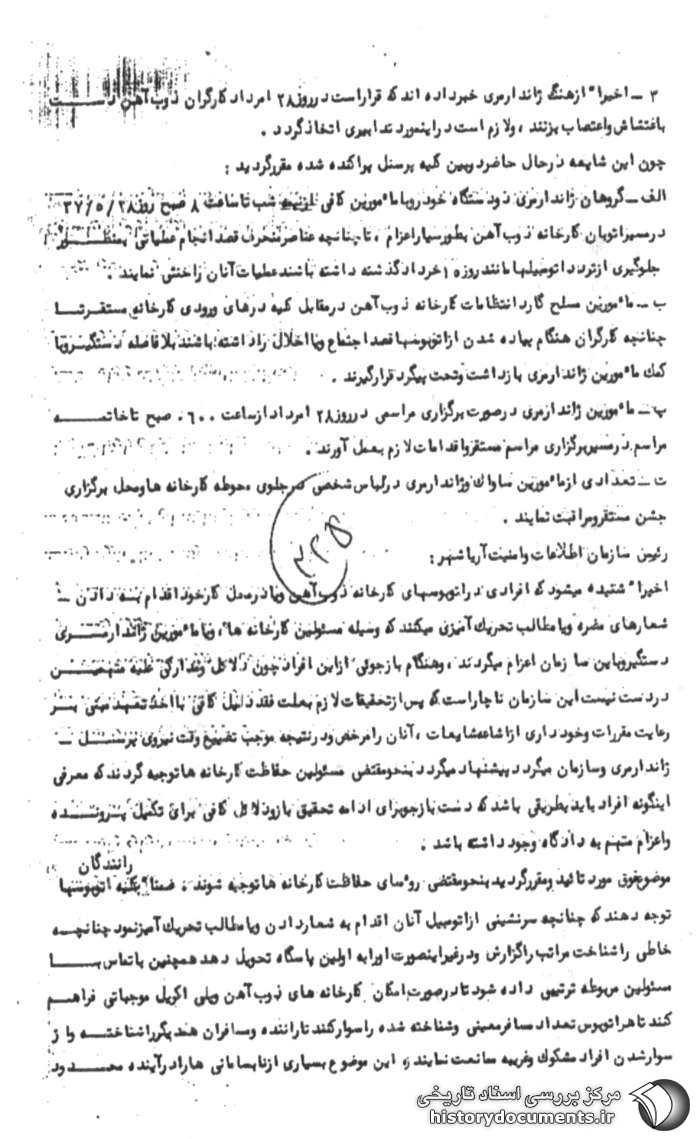 ۳ ـ اخیرا" ازهنگ ژاندارمری خبرداده اند که قراراست درروز۲۸ امرداد کارگران ذوب آهن دست
باغتشاش واعتصاب بزنند ، ولازم است دراینمورد تدابیری اتخاذ گردد .
چون این شایعه درحال حاضردربین کلیه پرسنل پراکنده شده مقررگردید :
الف ـ گروهان ژاندارمری دودستگاه خودروبامامورین کافی ازنیمه شب تاساعت ۸ صبح روز۳۷/۵/۲۸
درمسیراتوبان کارخانه ذوب آهن بطورسیاراعزام ، تاچنانچه عناصرمنحرف قصدانجام عملیاتی بمنظور
جلوگیری ازتردداتومبیلها مانند روزه ۱خرداد گذشته داشته باشند عملیات آنان راخنثی نمایند .
ب ـ مامورین مسلح گارد انتظامات کارخانه ذوب آهن درمقابل کلیه درهای ورودی کارخانه مستقرتا
چنانچه کارگران هنگام پیاده شدن ازاتوبوسها قصد اجتماع ویااخلال راداشته باشند بلافاصله دستگیروبا
کمک مامورین ژاندارمری بازداشت وتحت پیگرد قرارگیرند .
پ ـ مامورین ژاندارمری درصورت برگزاری مراسمی درروز۲۸ امرداد ازساعت ۶۰۰. صبح تاخاتمه
مراسم درمسیربرگزاری مراسم مستقرواقدامات لازم بعمل آورند .
ت ـ تعدادی ازمامورین ساواک وژاندارمری درلباس شخصی درجلوی محوطه کارخانه هاومحل برگزاری
جشن مستقرومراقبت نمایند .
۲۲۵
رئیس سازمان اطلاعات وامنیت آریاشهر :
اخیرا" شنیده میشود که افرادی دراتوبوسهای کارخانه ذوب آهن ویادرمحل کارخود اقدام به دادن ـ
شعارهای مضره ویامطالب تحریک آمیزی میکنند که وسیله مسئولین کارخانه ها، ویامامورین ژاندارمری
دستگیروباین سازمان اعزام میگردند ، وهنگام بازجوئی ازاین افراد چون دلائل ومدارکی علیه متهمین
دردست نیست این سازمان ناچاراست که پس ازتحقیقات لازم بعلت فقد دلیل کافی بااخذ تعهد مبنی بر
رعایت مقررات وخودداری ازاشاعه شایعات ، آنان رامرخص ودرنتیجه موجب تضییع وقت نیروی پرسنل ـ
ژاندارمری وسازمان میگردد پیشنهاد میگردد بنحومقتضی مسئولین حفاظت کارخانه هاتوجیه گردند که معرفی
اینگونه افراد باید بطریقی باشد که دست بازجوبرای ادامه تحقیق بازودلائل کافی برای تکمیل پرونده
واعزام متهم به دادگاه وجود داشته باشد .
رانندگان
موضوع فوق مورد تائید ومقررگردید بنحومقتضی روسای حفاظت کارخانه هاتوجیه شوند . ضمنا" بکلیه اتوبوسها
توجه دهند که چنانچه سرنشینی ازاتومبیل آنان اقدام به شعاردادن ویامطالب تحریک آمیزنمود چنانچه
خاطی راشناخت مراتب راگزارش ودرغیراینصورت اورابه اولین پاسگاه تحویل دهد همچنین باتماس با
مسئولین مربوطه ترتیبی داده شود تادرصورت امکان کارخانه های ذوب آهن وپلی اکریل موجباتی فراهم
کنند تاهراتوبوس تعداد مسافرمعینی وشناخته شده راسوارکنند تاراننده ومسافران همدیگرراشناخته واز
سوارشدن افراد مشکوک وغریبه ممانعت نمایند ، این موضوع بسیاری ازنابسامانی هارادرآینده محدود
مرکز بررسی اسناد تاریخی
historydocuments.ir